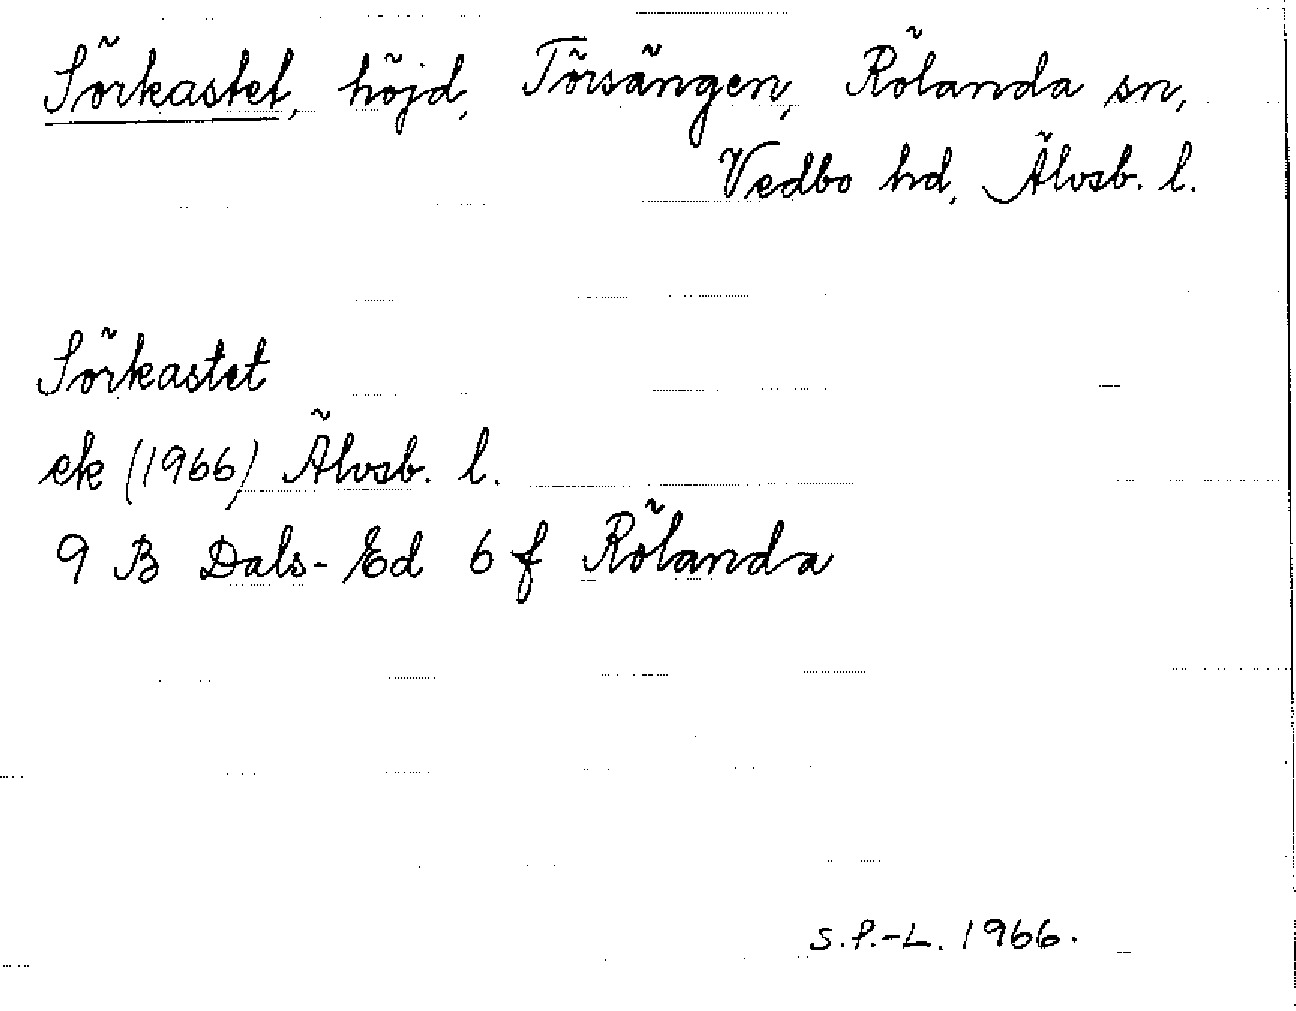 Sörkastet, höjd, Törsängen, Rölanda sn,
Vedbo hd, Älvsb. l.
Sörkastet
ek (1966) Älvsb. l.
9 B Dals-Ed 6 f Rölanda
S.P.-L. 1966.